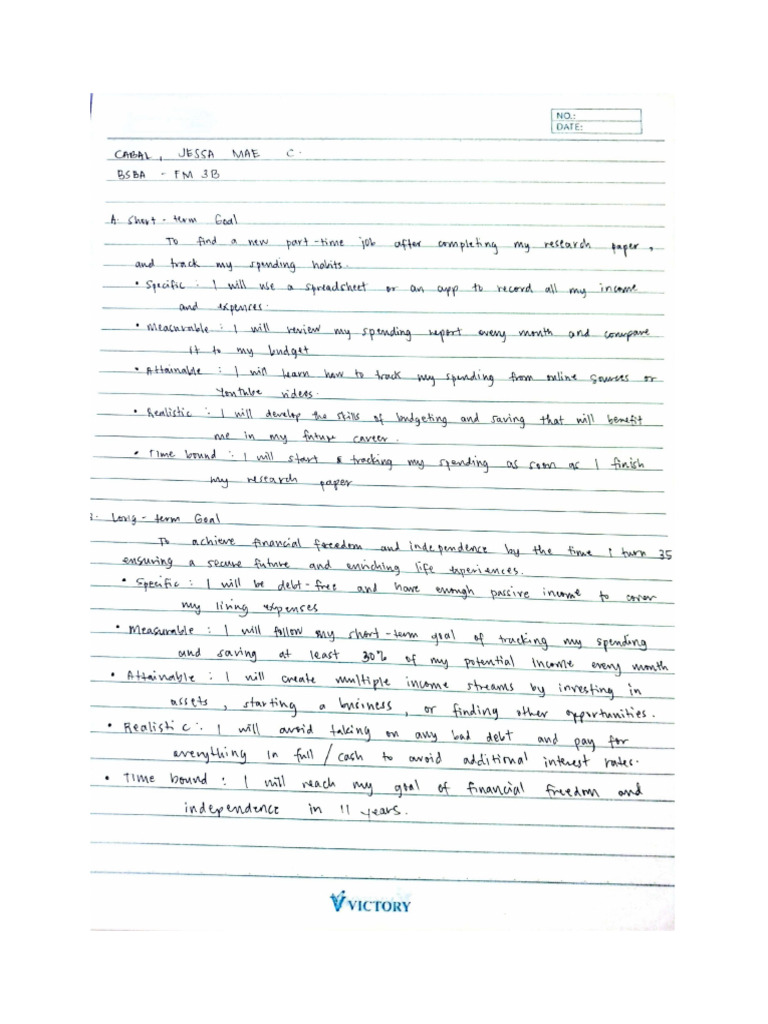 NO.:
DATE:
CABAL, JESSA MAE C.
BSBA - FM 3B
A. Short-term Goal
To find a new part-time job after completing my research paper,
and track my spending habits.
• Specific : I will use a spreadsheet or an app to record all my income
and expenses.
• Measurable : I will review my spending report every month and compare
it to my budget
• Attainable : I will learn how to track my spending from online sources or
YouTube videos.
• Realistic : I will develop the skills of budgeting and saving that will benefit
me in my future career.
• Time bound : I will start tracking my spending as soon as I finish
my research paper
B. Long-term Goal
To achieve financial freedom and independence by the time I turn 35
ensuring a secure future and enriching life experiences.
• Specific : I will be debt-free and have enough passive income to cover
my living expenses
• Measurable : I will follow my short-term goal of tracking my spending
and saving at least 30% of my potential Income every month
• Attainable : I will create multiple income streams by investing in
assets, starting a business, or finding other opportunities.
• Realistic : I will avoid taking on any bad debt and pay for
everything in full / cash to avoid additional interest rates.
• Time bound : I will reach my goal of financial freedom and
independence in 11 years.
VICTORY